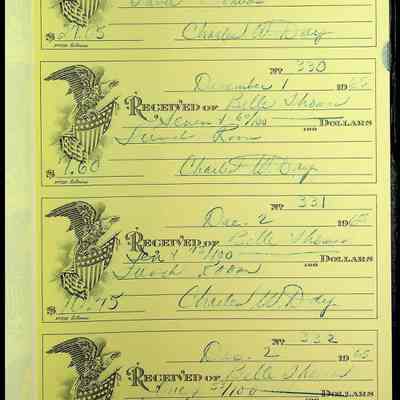 $ 27.05 Charles W. Day
No 330
December 1 1965
RECEIVED OF Belle Thomas
Seven & 60/100 DOLLARS
Lunch Room 100
$ 7.60 Charles W. Day
No 331
Dec. 2 1965
RECEIVED OF Belle Thomas
Ten & 75/100 DOLLARS
Lunch Room 100
$ 10.75 Charles W. Day
No 332
Dec. 2 1965
RECEIVED OF Belle Thomas
100 DOLLARS